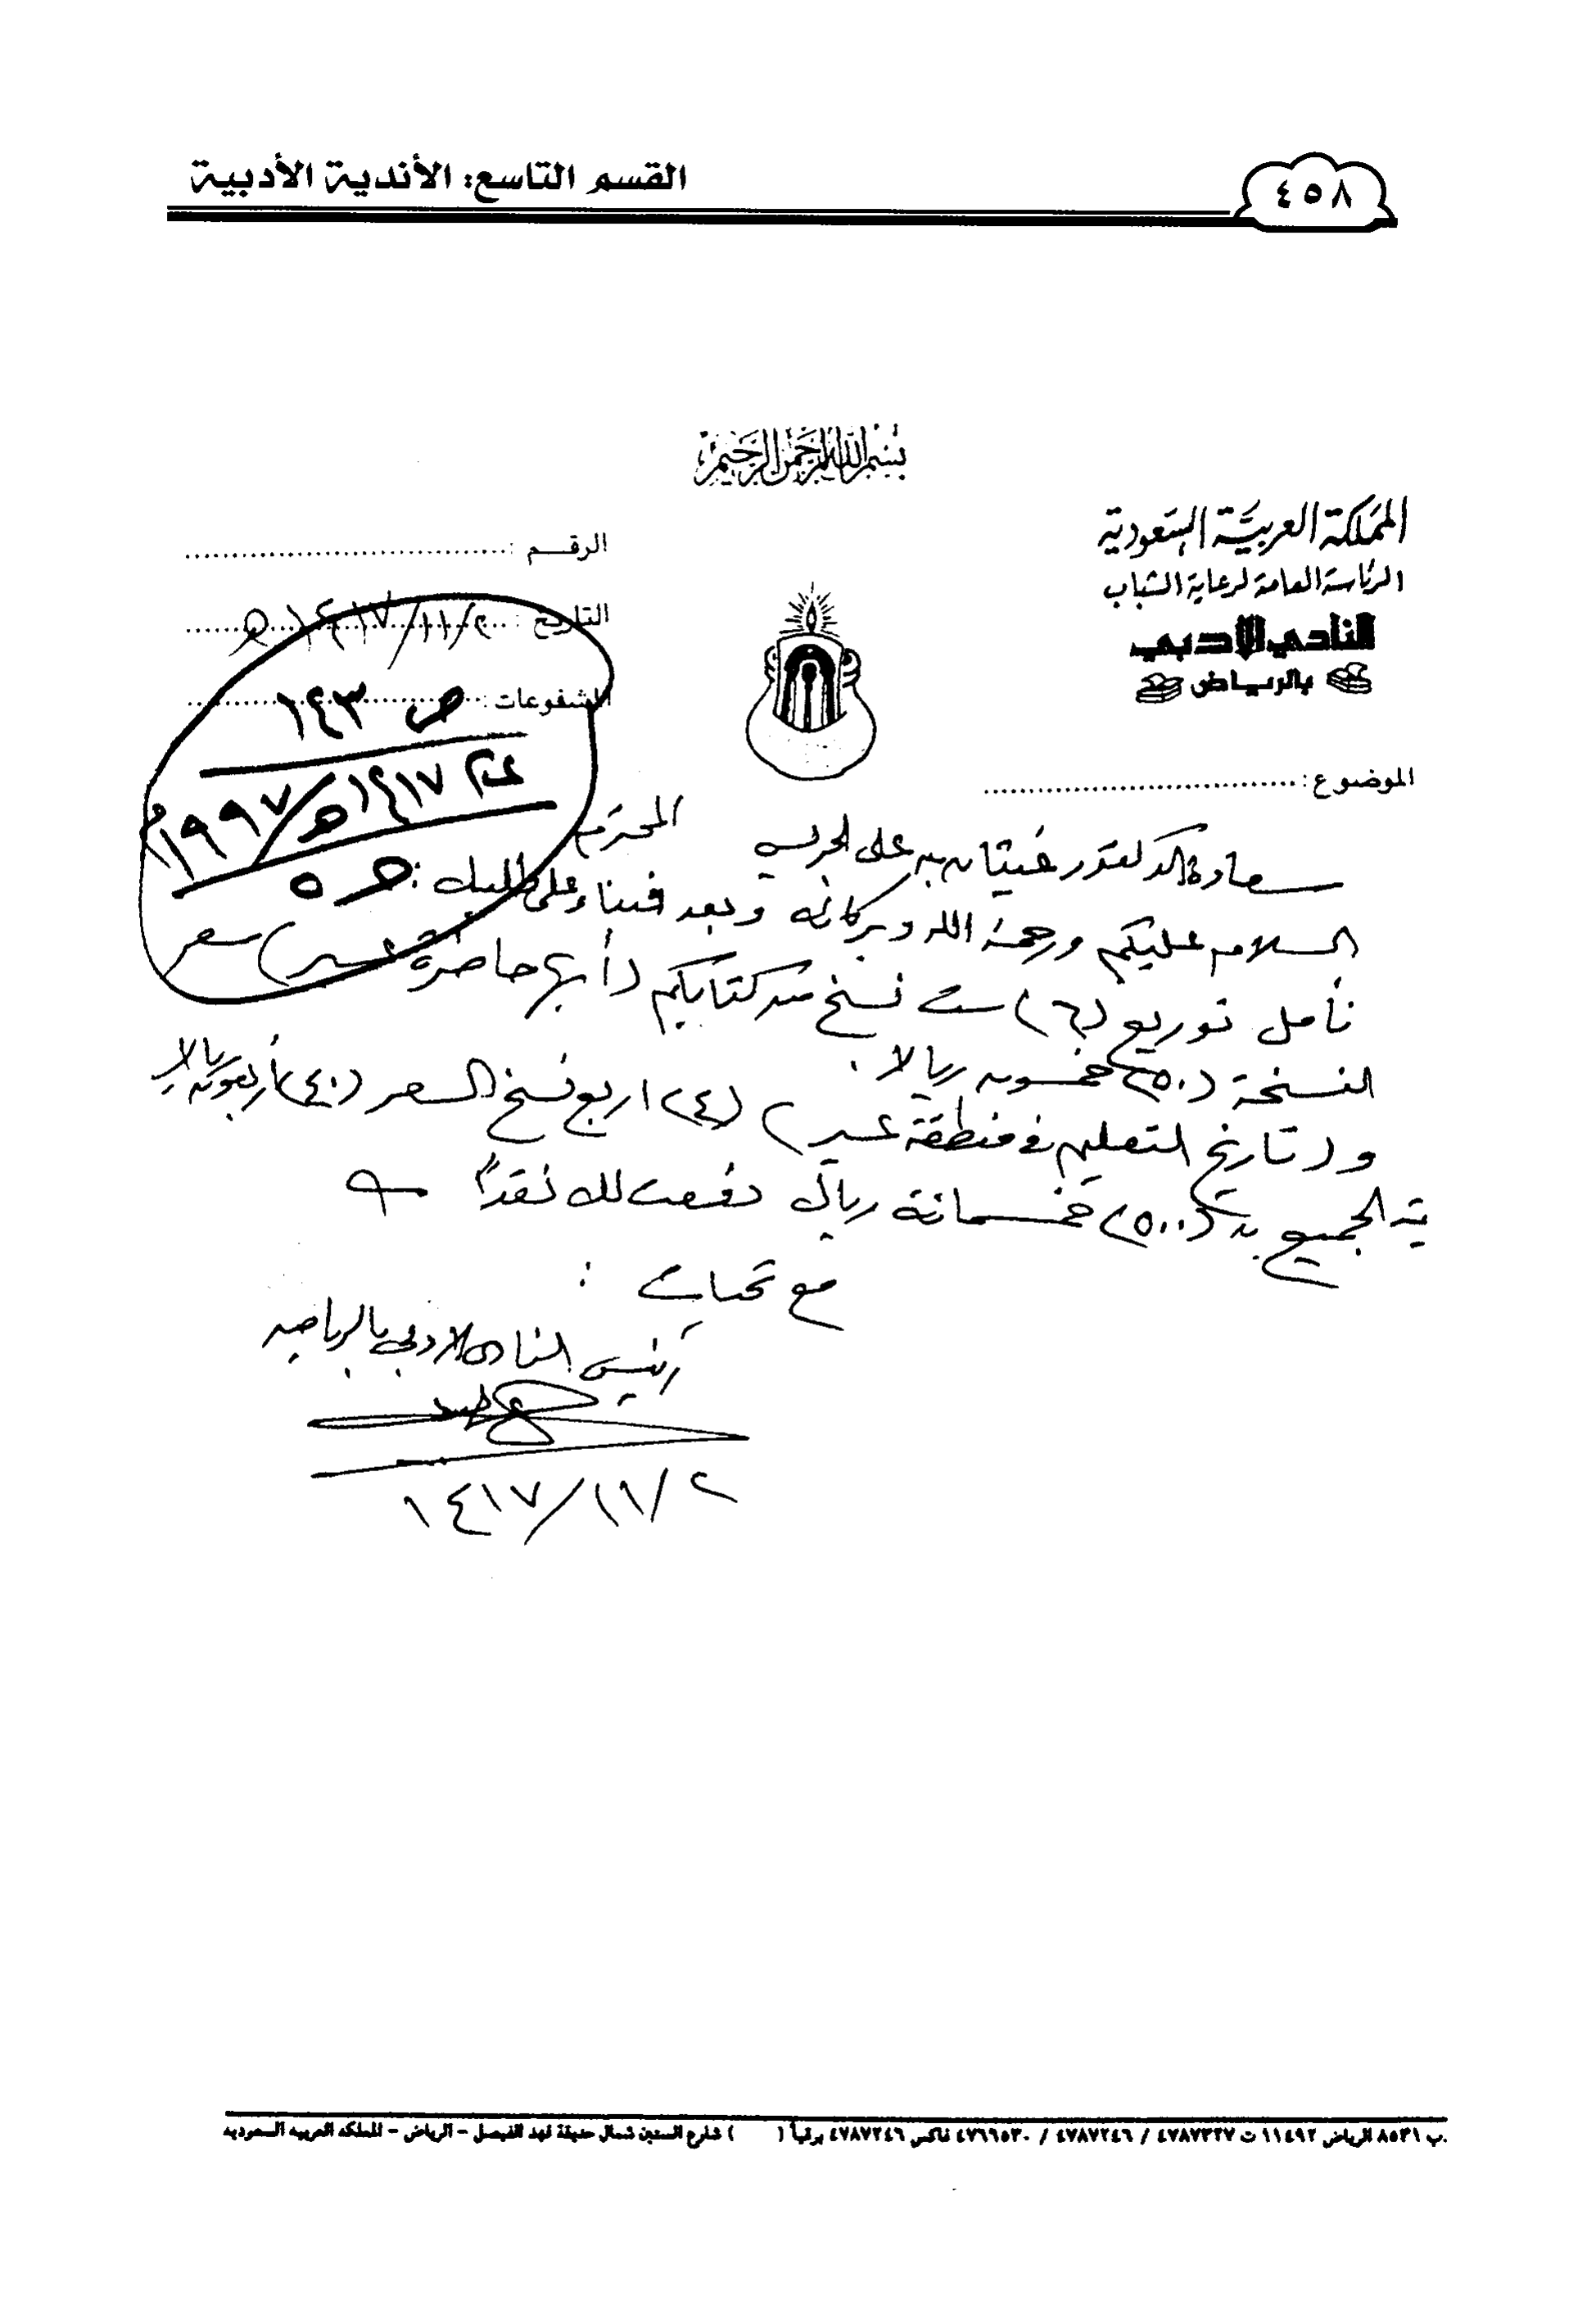 القسم التاسع: الأندية الأدبية
٤٥٨
بسم الله الرحمن الرحيم
المملكة العربية السعودية
الرئاسة العامة لرعاية الشباب
النادي الأدبي
بالرياض
الموضوع:
الرقم :
التاريخ : ٢/١١/١٤١٧هـ
المشفوعات :
ص ١٤٣
عام ١٤١٧هـ/١٩٩٧م
سعادة الدكتور غيثان بن علي الجريس المحترم
السلام عليكم ورحمة الله وبركاته وبعد فبناء على طلبك :
نأمل توزيع (٦) ست نسخ من كتابكم (أبها حاضرة عسير) سعر
النسخة (٥٠) خمسون ريالا .
و(تاريخ التعليم في منطقة عسير) (٤) اربع نسخ السعر (٤٠) أربعون ريالا
الجميع بـ (٥٠٠) خمسمائة ريال دفعت لك نقداً
مع تحيات :
رئيس النادي الأدبي بالرياض
٢/١١/١٤١٧
ب ٨٥٣١ الرياض ١١٤٩٢ ت ٤٧٨٧٣٢٧ / ٤٧٨٧٢٤٦ / ٤٧٦٦٥٣٠ فاكس ٤٧٨٧٢٤٦ برقياً ( ) شارع الستين شمال حديقة فهد الفيصل - الرياض - المملكة العربية السعودية